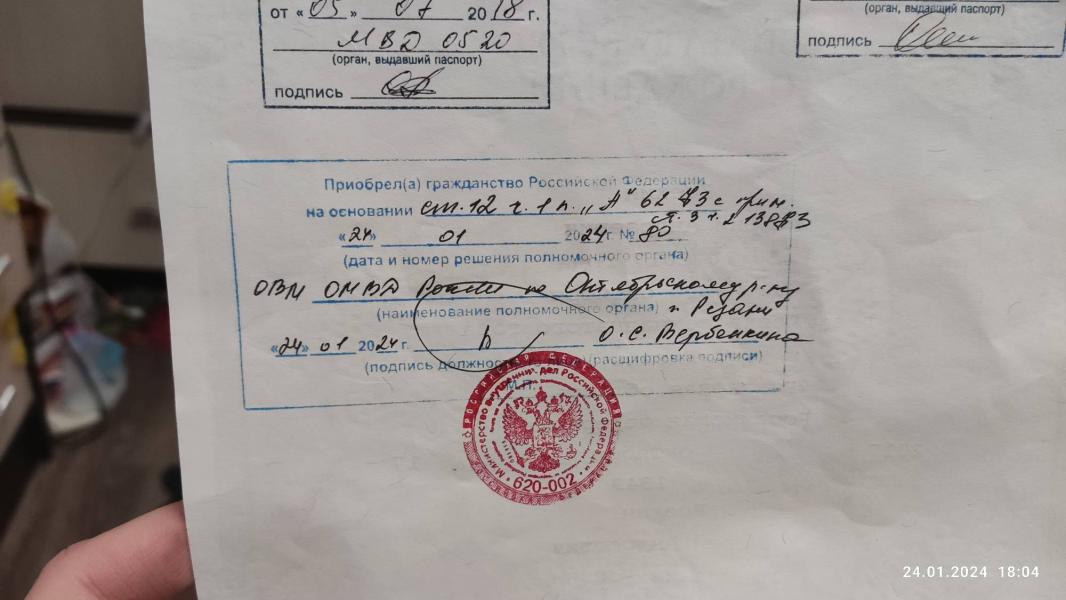 от «05» 07 2018 г.
МВД 0520
(орган, выдавший паспорт)
подпись
(орган, выдавший паспорт)
подпись
Приобрел(а) гражданство Российской Федерации
на основании ст.12 ч.1 п. „А" 62 ФЗ с прим.
ст. 3 т. 2 138ФЗ
«24» 01 2024 г. № 80
(дата и номер решения полномочного органа)
ОВМ ОМВД России по Октябрьскому р-ну
(наименование полномочного органа) г. Рязани
«24» 01 2024 г. О.С. Вербенкина
(подпись должностного лица) (расшифровка подписи)
М.П.
РОССИЙСКАЯ ФЕДЕРАЦИЯ
Министерство внутренних дел Российской Федерации
620-002
24.01.2024 18:04